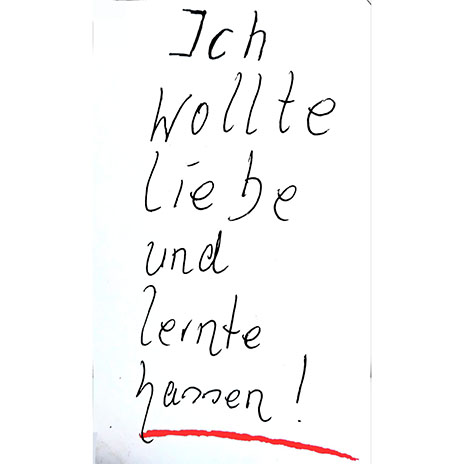 Ich
wollte
liebe
und
lernte
hassen!